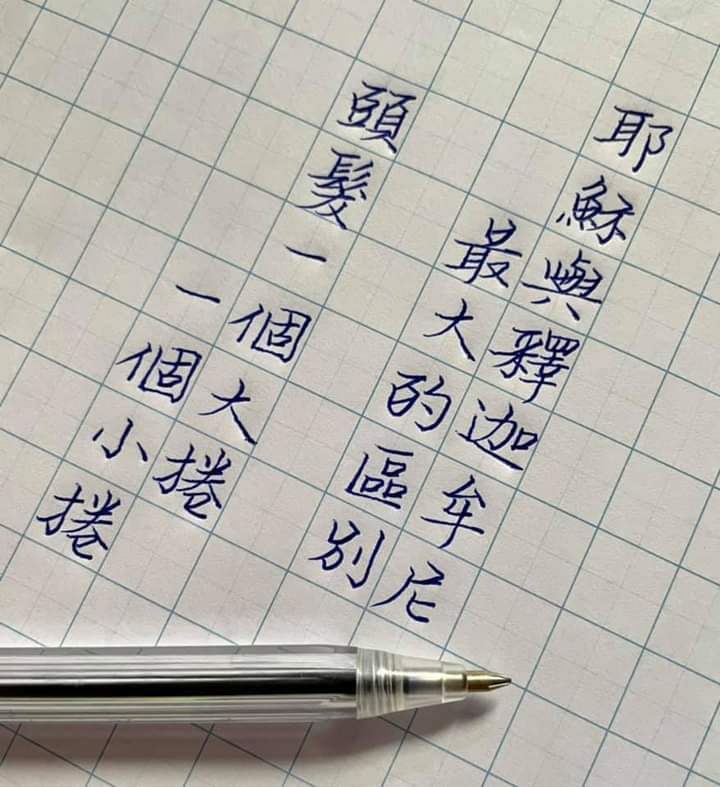 耶穌與釋迦牟尼
最大的區別
頭髮一個大捲
一個小捲